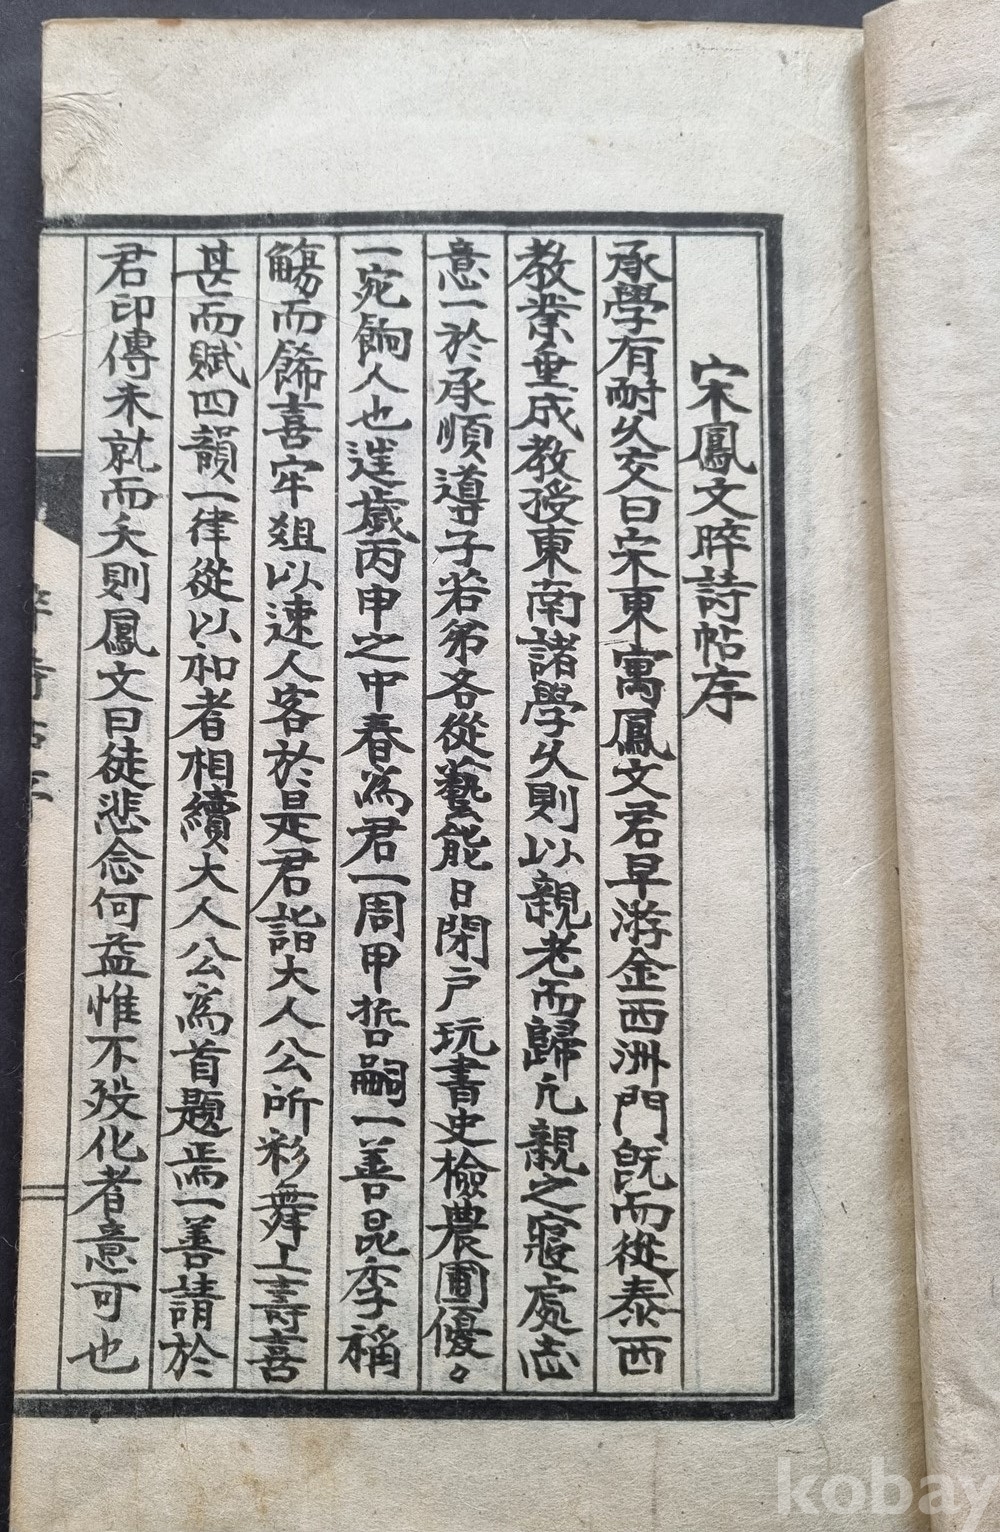 宋鳳文晬詩帖序
承學有耐久交曰宋東寓鳳文君早游金西洲門旣而從泰西
教業垂成教授東南諸學久則以親老而歸凢親之寢處志
意一於承順導子若弟各從藝能日閉戶玩書史檢農圃優〻
一宛餉人也逞歲丙申之中春為君一周甲哲嗣一善昆季稱
觴而餙喜牢俎以速人客於是君詣大人公所彩舞上壽喜
甚而賦四韻一律從以和者相續大人公為首題焉一善請於
君印傳未就而夭則鳳文曰徒悲念何益惟不歿化者意可也
kobay